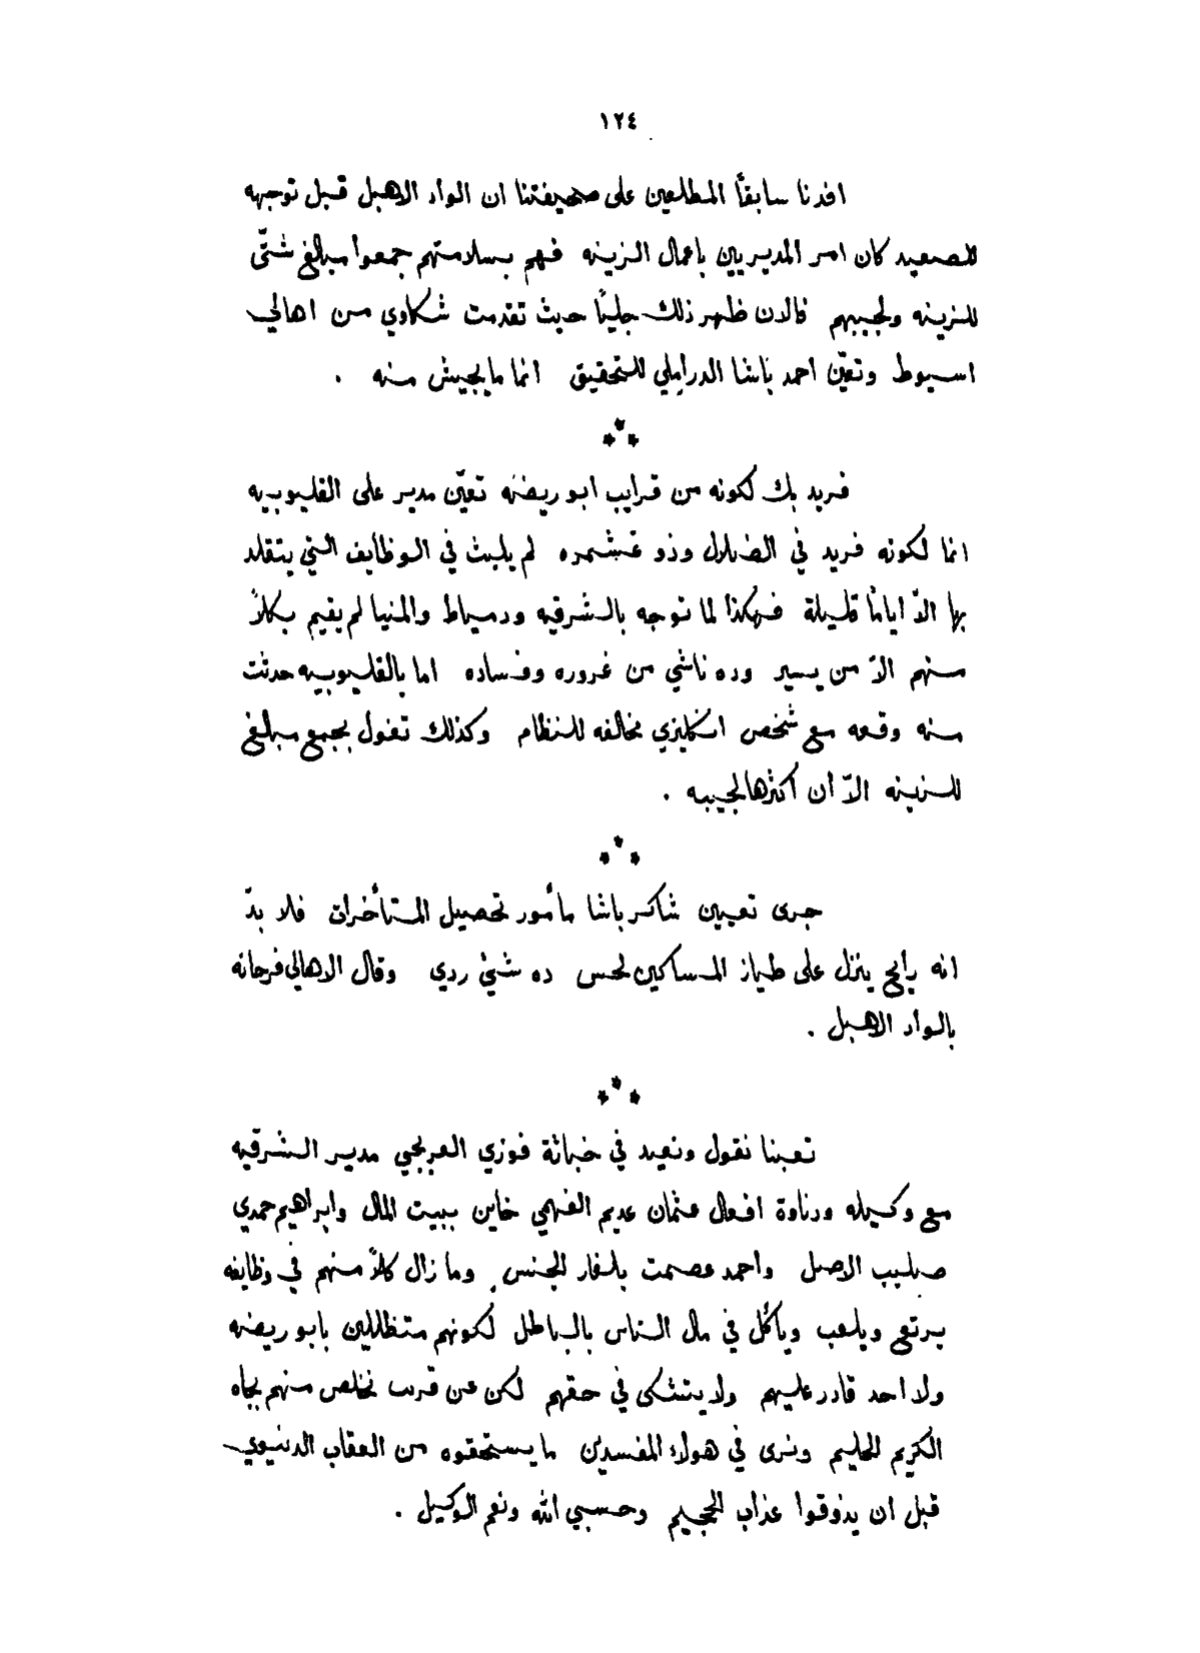 ١٢٤
افدنا سابقاً المطلعين على صحيفتنا ان الواد الاهبل قبل توجهه
للصعيد كان امر المديريين باعمال الزينه فهم بسلامتهم جمعوا مبالغ شتّى
للزينه ولجيبهم فالان ظهر ذلك جليًا حيث تقدمت شكاوي من اهالي
اسيوط وتعيّن احمد باشا الدراملي للتحقيق انما مايجيش منه .
فريد بك لكونه من قرايب ابو ريضه تعيّن مدير على القليوبيه
انما لكونه فريد في الضلال وذو غشمره لم يلبث في الوظايف التي يتقلد
بها الاّ ايامًا قليلة فهكذا لما توجه بالشرقيه ودمياط والمنيا لم يقيم بكلاً
منهم الاّ من يسير وده ناشي من غروره وفساده اما بالقليوبيه حدثت
منه وقعه مع شخص انكليزي مخالفه للنظام وكذلك تغول بجمع مبلغ
للزينه الاّ أن أكثرها لجيبه .
جرى تعيين شاكر باشا مأمور تحصيل المتأخرات فلا بدّ
انه رايح ينزل على طياز المساكين لحس ده شيْ ردي وقال الاهالي فرحانه
بالواد الاهبل .
تعبنا نقول ونعيد في خباثة فوزي العربجي مدير الشرقيه
مع وكيله ورناوة افعال عثمان عديم الفهمي خاين ببيت المال وابراهيم حمدي
صليب الاصل واحمد عصمت بلفار الجنس وما زال كلاً منهم في وظايفه
يرتع ويلعب ويأكل في مال الناس بالباطل لكونهم متظللين بابو ريضه
ولا احد قادر عليهم ولا يتشكى في حقهم لكن عن قريب نخلص منهم بجاه
الكريم الحليم ونرى في هولاء المفسدين ما يستحقوه من العقاب الدنيوي
قبل ان يذوقوا عذاب الجحيم وحسبي الله ونعم الوكيل .